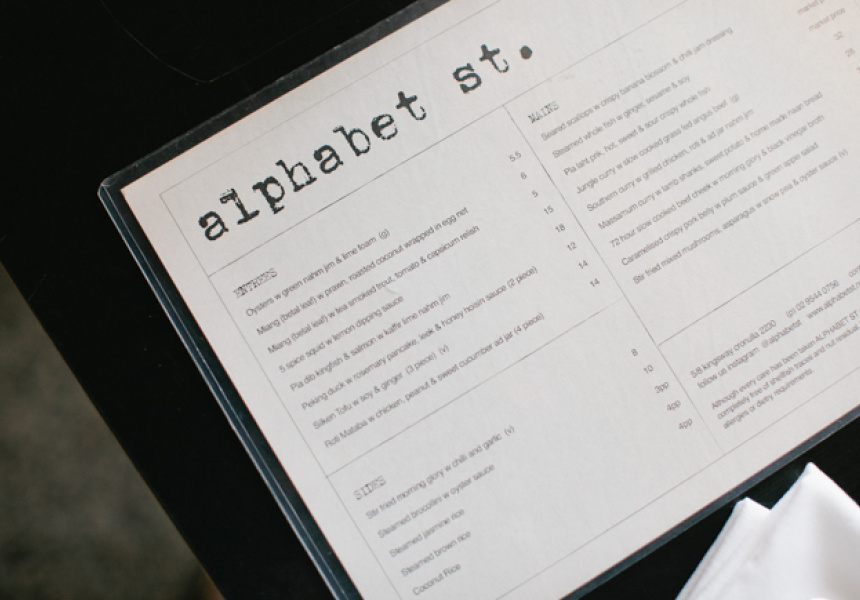 alphabet st.
ENTREES
Oysters w green nahm jim & lime foam (g) 5.5
Miang (betal leaf) w prawn, roasted coconut wrapped in egg net 6
Miang (betal leaf) w tea smoked trout, tomato & capsicum relish 5
5 spice squid w lemon dipping sauce 15
Pla dib kingfish & salmon w kaffir lime nahm jim 18
Peking duck w rosemary pancake, leek & honey hoisin sauce (2 piece) 12
Silken Tofu w soy & ginger (3 piece) (v) 14
Roti Mataba w chicken, peanut & sweet cucumber ad jar (4 piece) 14
SIDES
Stir fried morning glory w chilli and garlic (v) 8
Steamed broccolini w oyster sauce 10
Steamed jasmine rice 3pp
Steamed brown rice 4pp
Coconut Rice 4pp
MAINS
Seared scallops w crispy banana blossom & chilli jam dressing
Steamed whole fish w ginger, sesame & soy market price
Pla lard prik, hot, sweet & sour crispy whole fish market price
Jungle curry w slow cooked grass fed angus beef (g) 32
Southern curry w grilled chicken, roti & ad jar nahm jim 28
Massamum curry w lamb shanks, sweet potato & home made naan bread
72 hour slow cooked beef cheek w morning glory & black vinegar broth
Caramelised crispy pork belly w plum sauce & green apple salad
Stir fried mixed mushrooms, asparagus w snow pea & oyster sauce (v)
5/8 kingsway cronulla 2230 (p) 02 9544 0756
follow us instagram @alphabetst www.alphabetst
Although every care has been taken ALPHABET ST
completely free of shellfish traces and nut residue
allergies or dietry requirements.